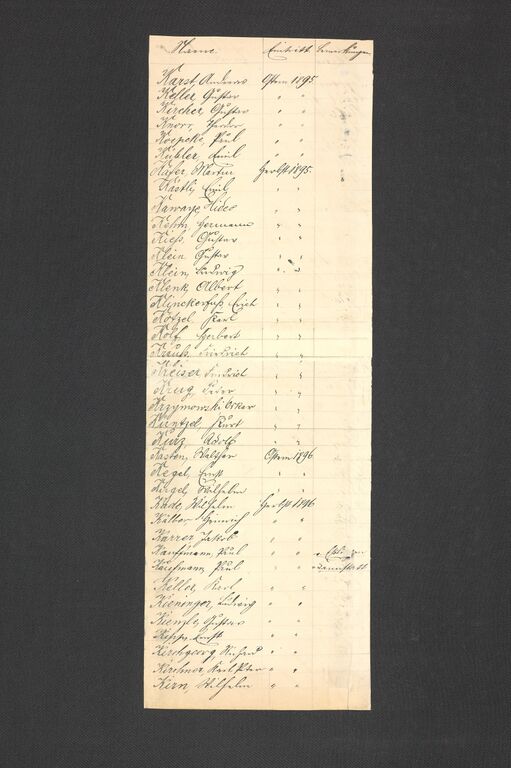 Name. Eintritt. Bemerkungen
Karst, Andreas Ostern 1895
Keller, Gustav " "
Kircher, Gustav " "
Knorr, " "
Koepcke, Paul " "
Kübler, Emil " "
Käfer, Martin Herbst 1895.
Kästle, Emil " "
Kawaye Hideo " "
Kehm, Hermann " "
Kieß, Gustav " "
Klein Gustav " "
Klein, Ludwig " "
Klenk, Albert " "
Klinckerfuß Erich " "
Kötzel, Karl " "
Kolf, Herbert " "
Krauß, Friedrich " "
Kreiser, Friedrich " "
Krug, " "
Krzymowski Oskar " "
Küntzel, Kurt " "
Kurz, Adolf " "
Kasten, Walther Ostern 1896
Kegel, Ernst " "
Kirgel, Wilhelm " "
Kade, Wilhelm Herbst 1896
Kälber Heinrich " "
Karrer Jakob " "
Kauffmann, Paul " "
Kaufmann, Paul " "
Keller, Karl " "
Kieninger, Ludwig " "
Kienzle, Gustav " "
Kipp, Ernst " "
Kirchgeorg, Richard " "
Kirchner, Karl Peter " "
Kirn, Wilhelm " "